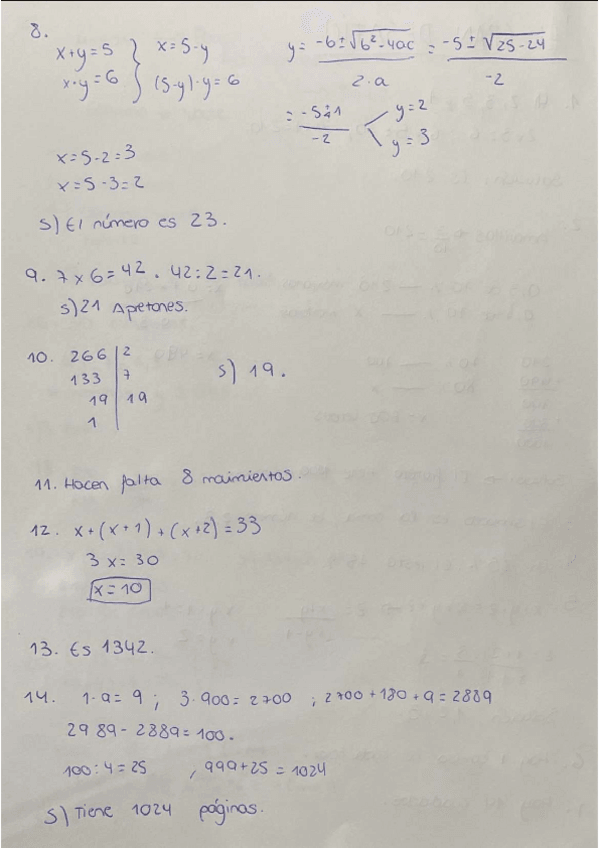 8.
x+y=5 } x=5-y
x·y=6 } (5-y)·y=6
y = -6±√6²-4ac / 2·a = -5±√25-24 / -2
= -5±1 / -2 y=2
y=3
x=5-2=3
x=5-3=2
S) El número es 23.
9. 7x6=42. 42:2=21.
S) 21 Apretones.
10. 266 | 2
133 | 7
19 | 19
1
S) 19.
11. Hacen falta 8 movimientos.
12. x+(x+1)+(x+2)=33
3x=30
x=10
13. Es 1342.
14. 1·9=9; 3·900=2700; 2700+180+9=2889
2989-2889=100.
100:4=25, 999+25=1024
S) Tiene 1024 páginas.